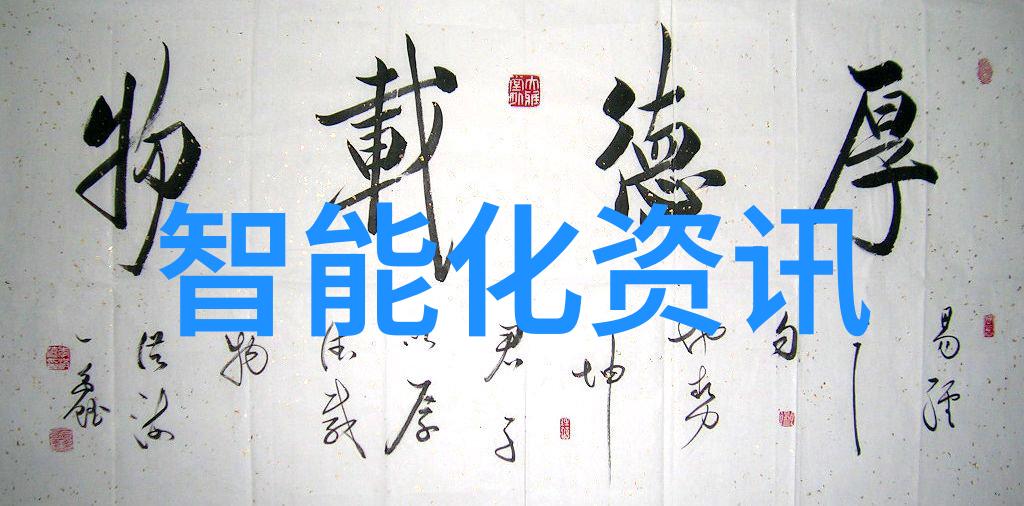 厚德載物
智能化资讯
易經
句
地勢
坤
君子
以厚
德載
物